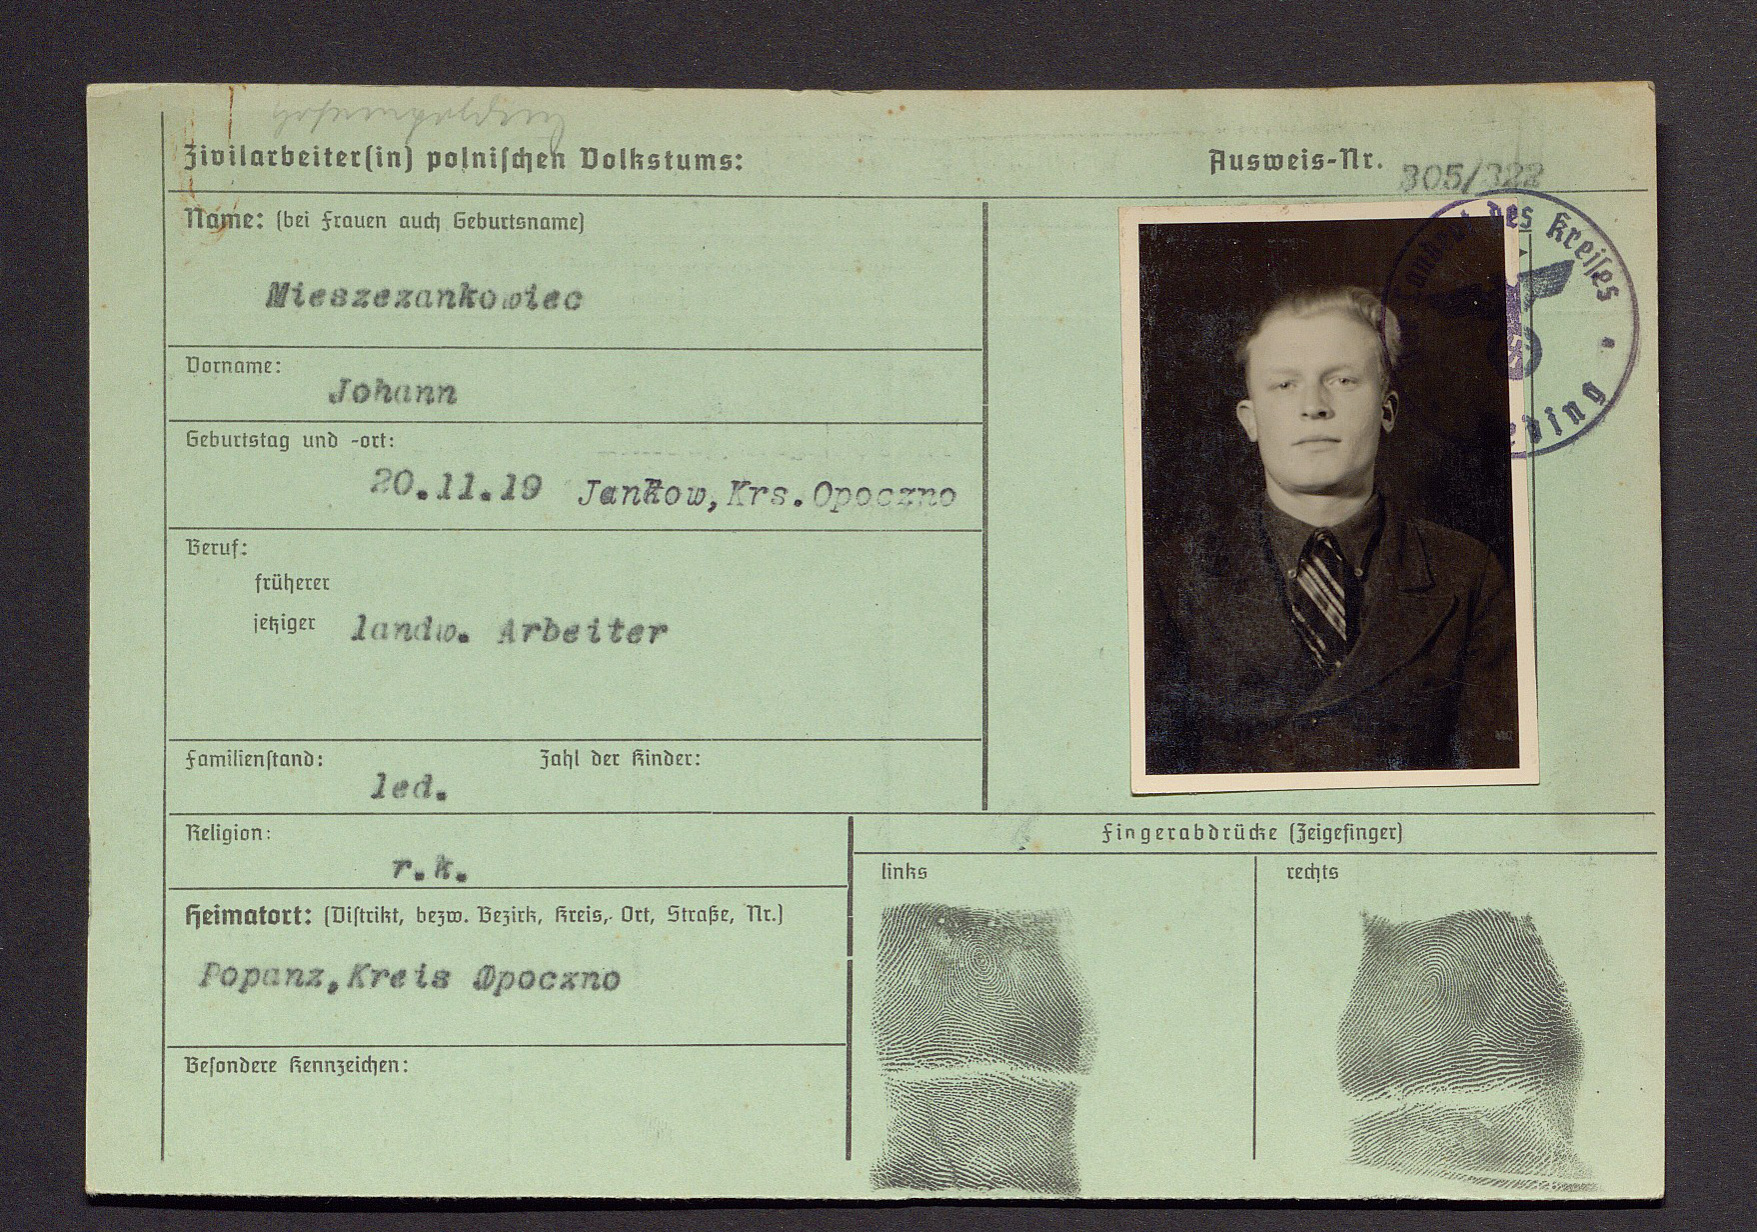 Zivilarbeiter(in) polnischen Volkstums:
Ausweis-Nr. 305/322
Name: (bei Frauen auch Geburtsname)
Mieszezankowiec
Vorname:
Johann
Geburtstag und -ort:
20.11.19 Jankow, Krs. Opoczno
Beruf:
früherer
jetziger landw. Arbeiter
Familienstand: Zahl der Kinder:
led.
Religion:
r.k.
Heimatort: (Distrikt, bezw. Bezirk, Kreis, Ort, Straße, Nr.)
Popanz, Kreis Opoczno
Besondere Kennzeichen:
Fingerabdrücke (Zeigefinger)
links
rechts
Landrat des Kreises